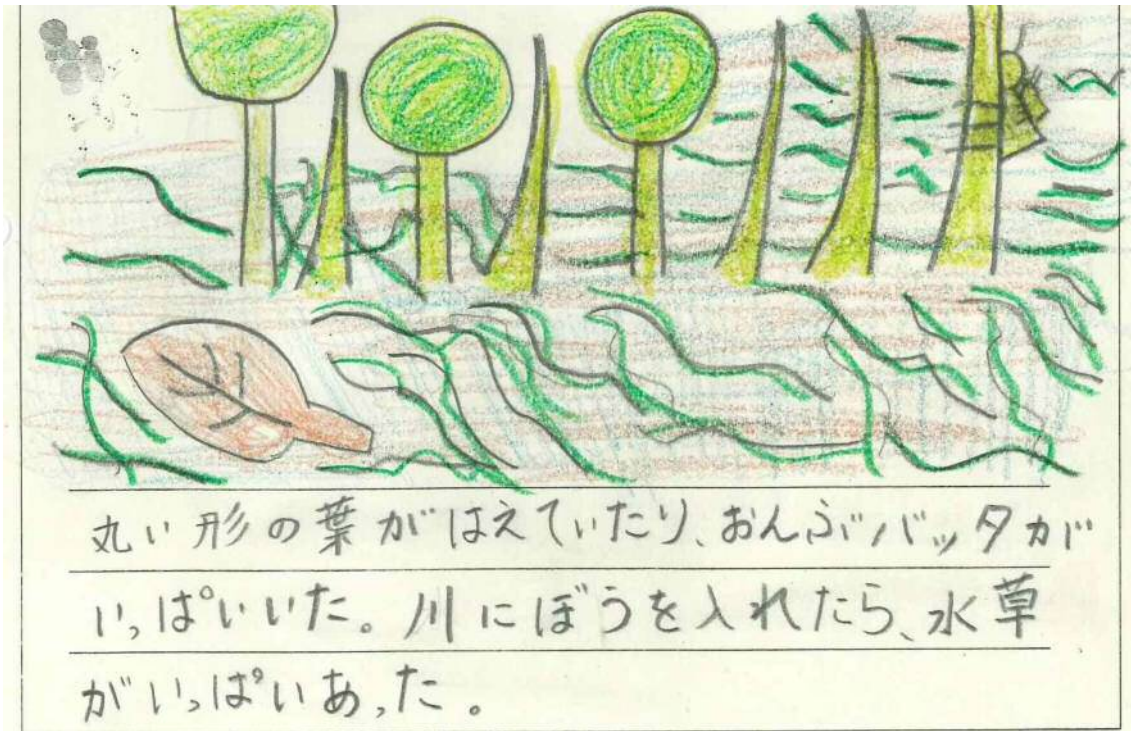 丸い形の葉がはえていたり、おんぶバッタが
いっぱいいた。川にぼうを入れたら、水草
がいっぱいあった。